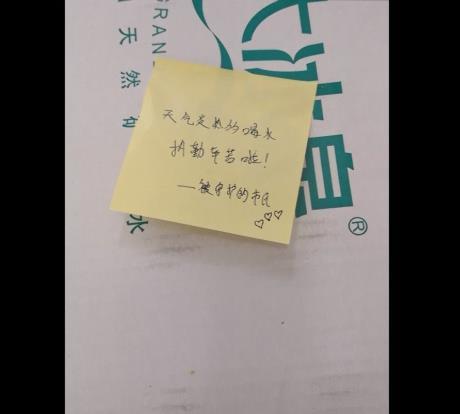 GRAN
天然矿
水
冰泉®
天气炎热多喝水
执勤辛苦啦！
—被守护的市民